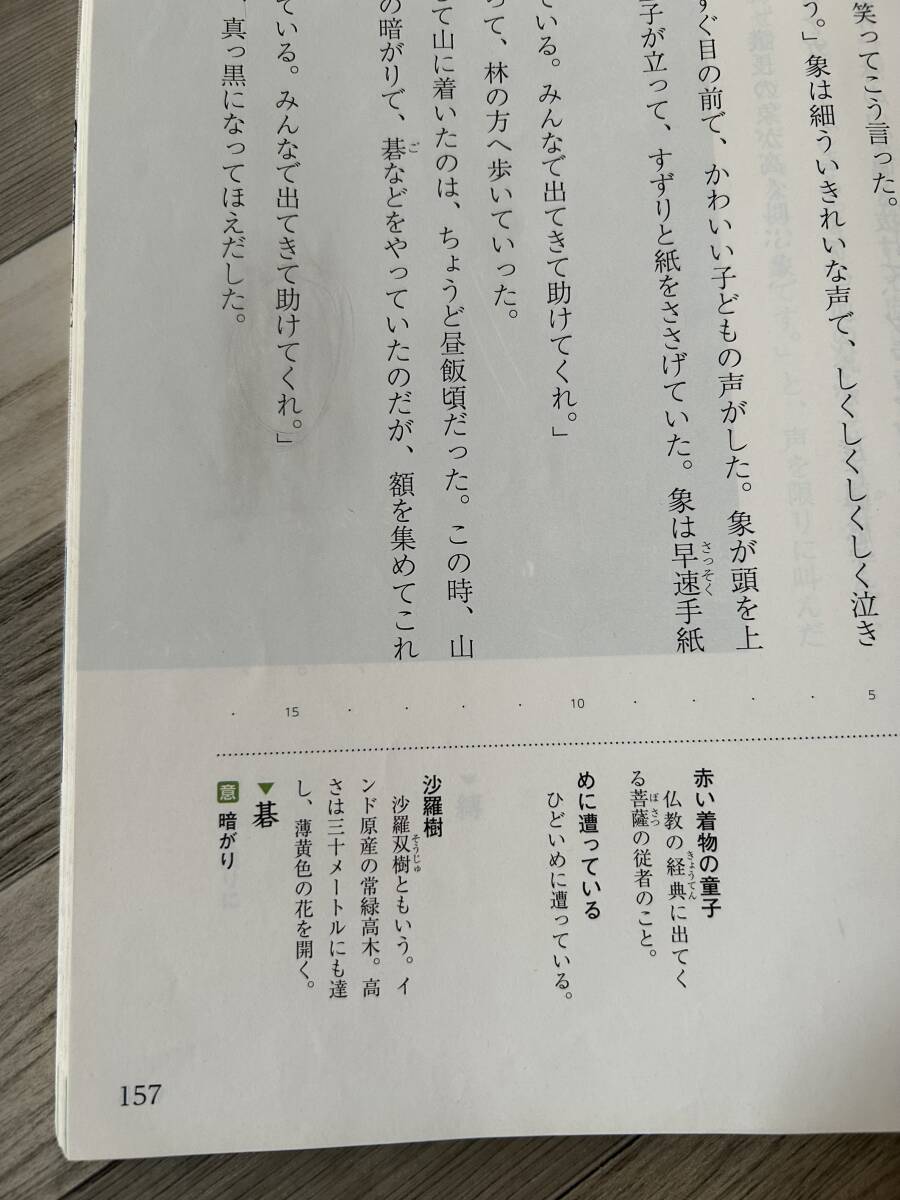 笑ってこう言った。
う。」象は細ういきれいな声で、しくしくしくしく泣き
すぐ目の前で、かわいい子どもの声がした。象が頭を上
子が立って、すずりと紙をささげていた。象は早速手紙
さっそく
ている。みんなで出てきて助けてくれ。」
って、林の方へ歩いていった。
して山に着いたのは、ちょうど昼飯頃だった。この時、山
の暗がりで、碁などをやっていたのだが、額を集めてこれ
ご
ている。みんなで出てきて助けてくれ。」
真っ黒になってほえだした。
5
10
15
赤い着物の童子
仏教の経典に出てく
きょうてん
る菩薩の従者のこと。
ぼさつ
めに遭っている
ひどいめに遭っている。
沙羅樹
沙羅双樹ともいう。イ
そうじゅ
ンド原産の常緑高木。高
さは三十メートルにも達
し、薄黄色の花を開く。
▼碁
意 暗がり
157